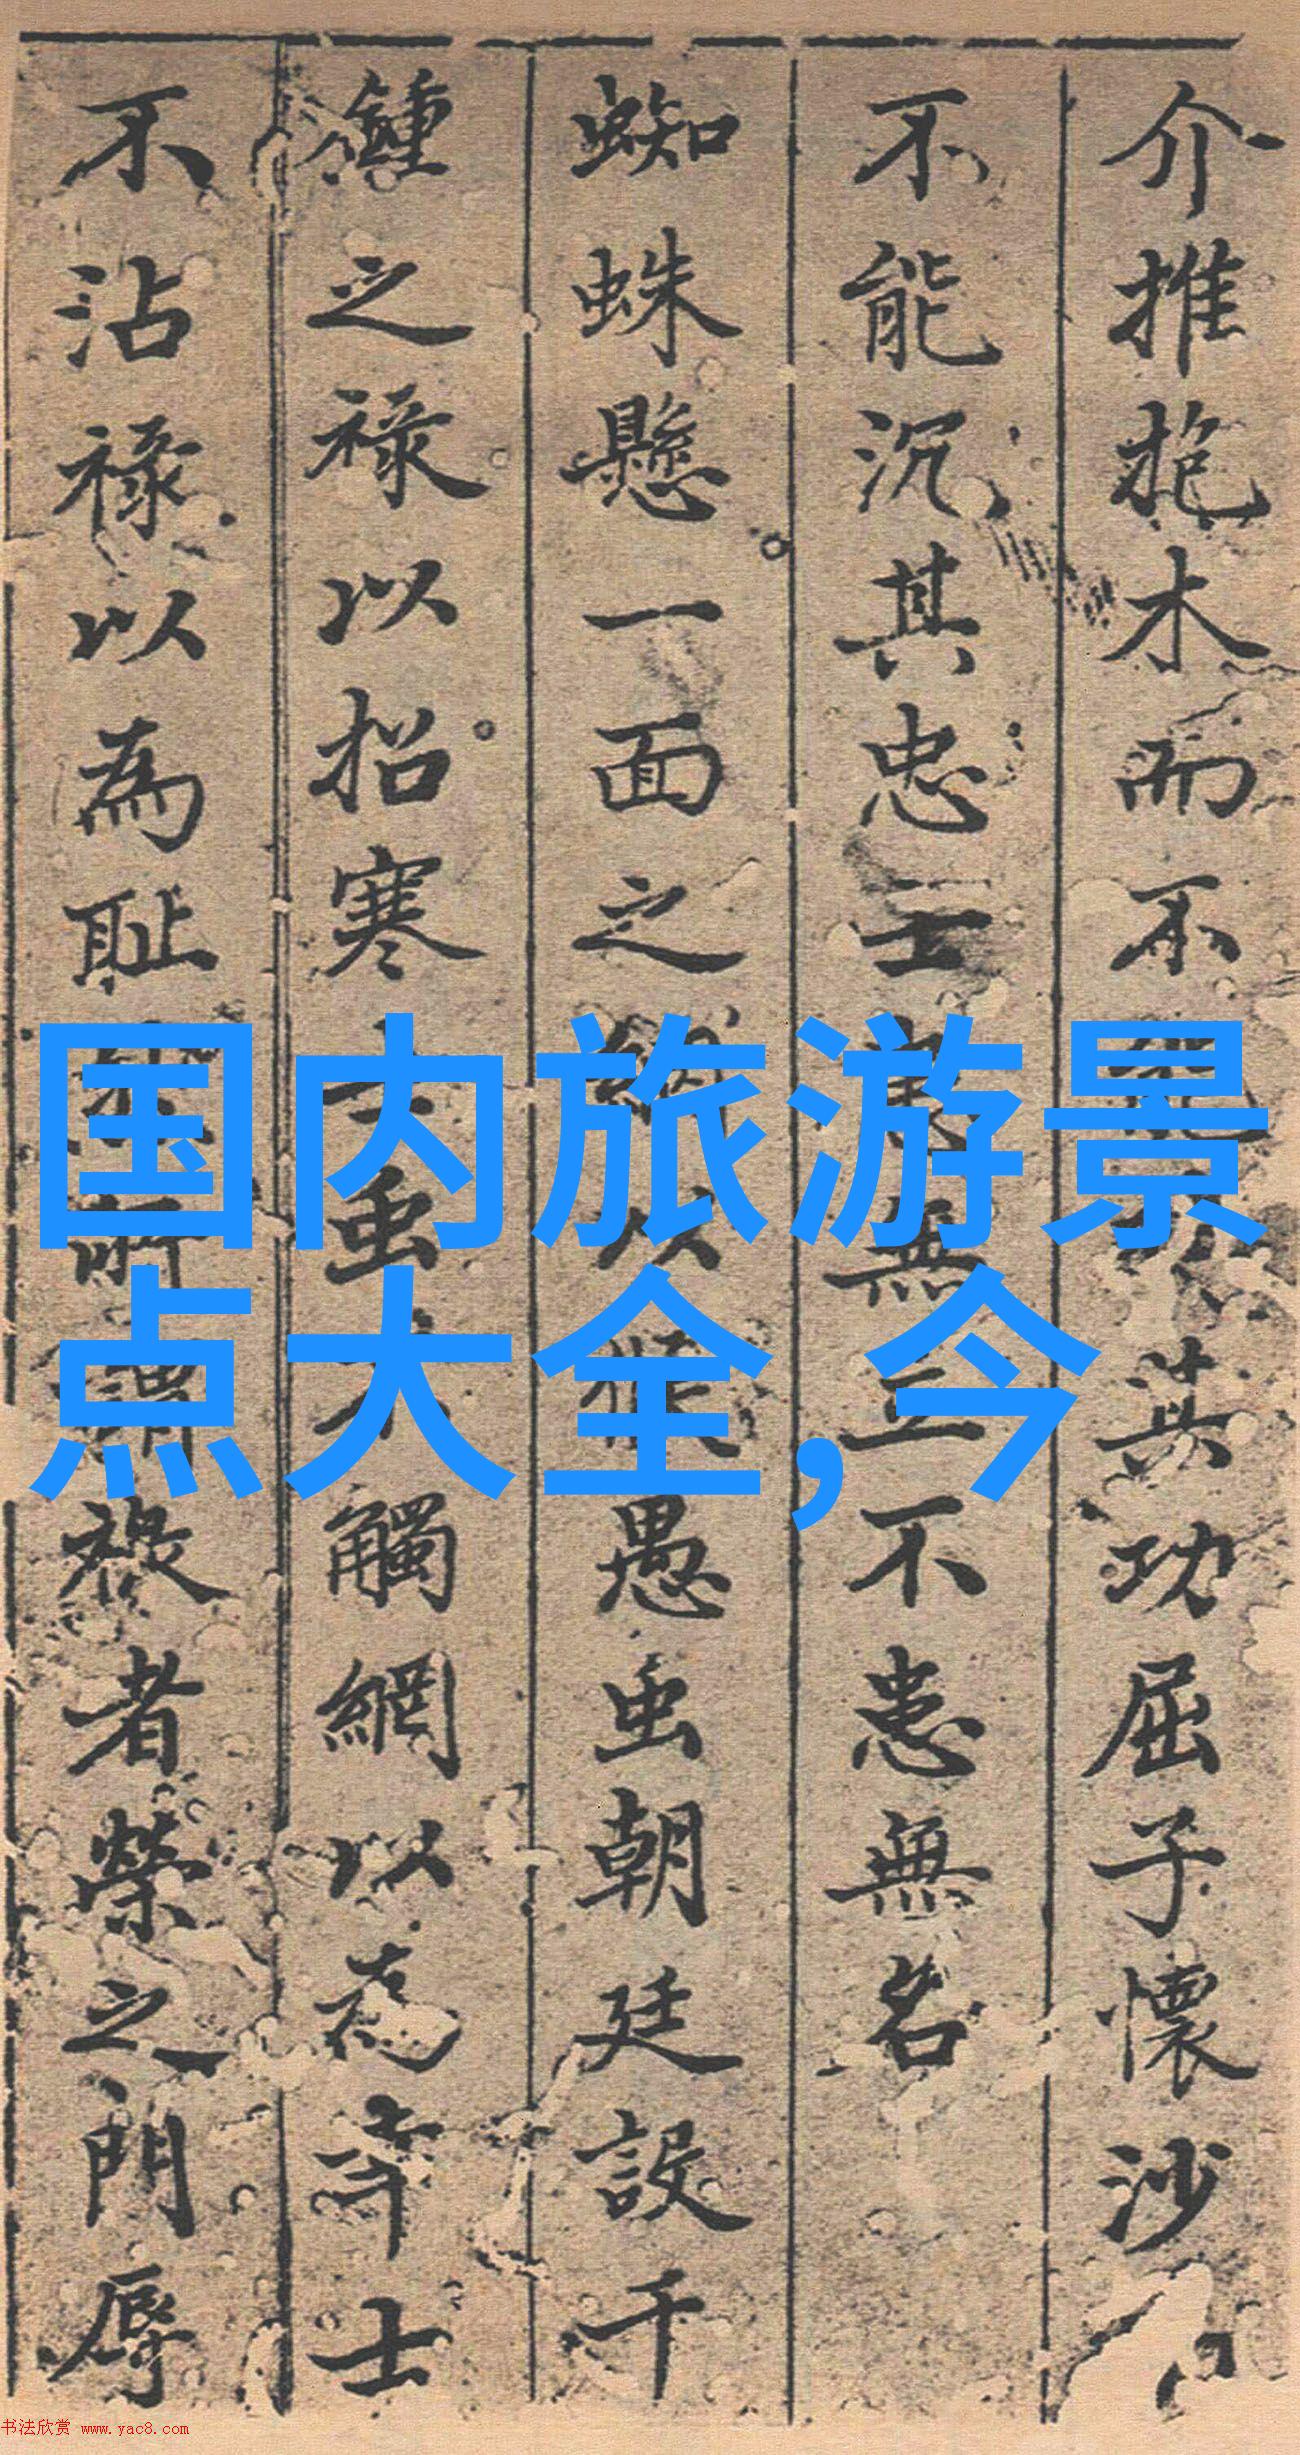 介推抱木而不其功屈子懷沙
不能沉其忠士無立不患無名
蜘蛛懸一面之網以愚虫朝廷設千
鍾之祿以招寒士虫不觸網以為寧士
不沾祿以為恥所謂祿者榮之門辱
国内旅游景
点大全,今
书法欣赏 www.yac8.com